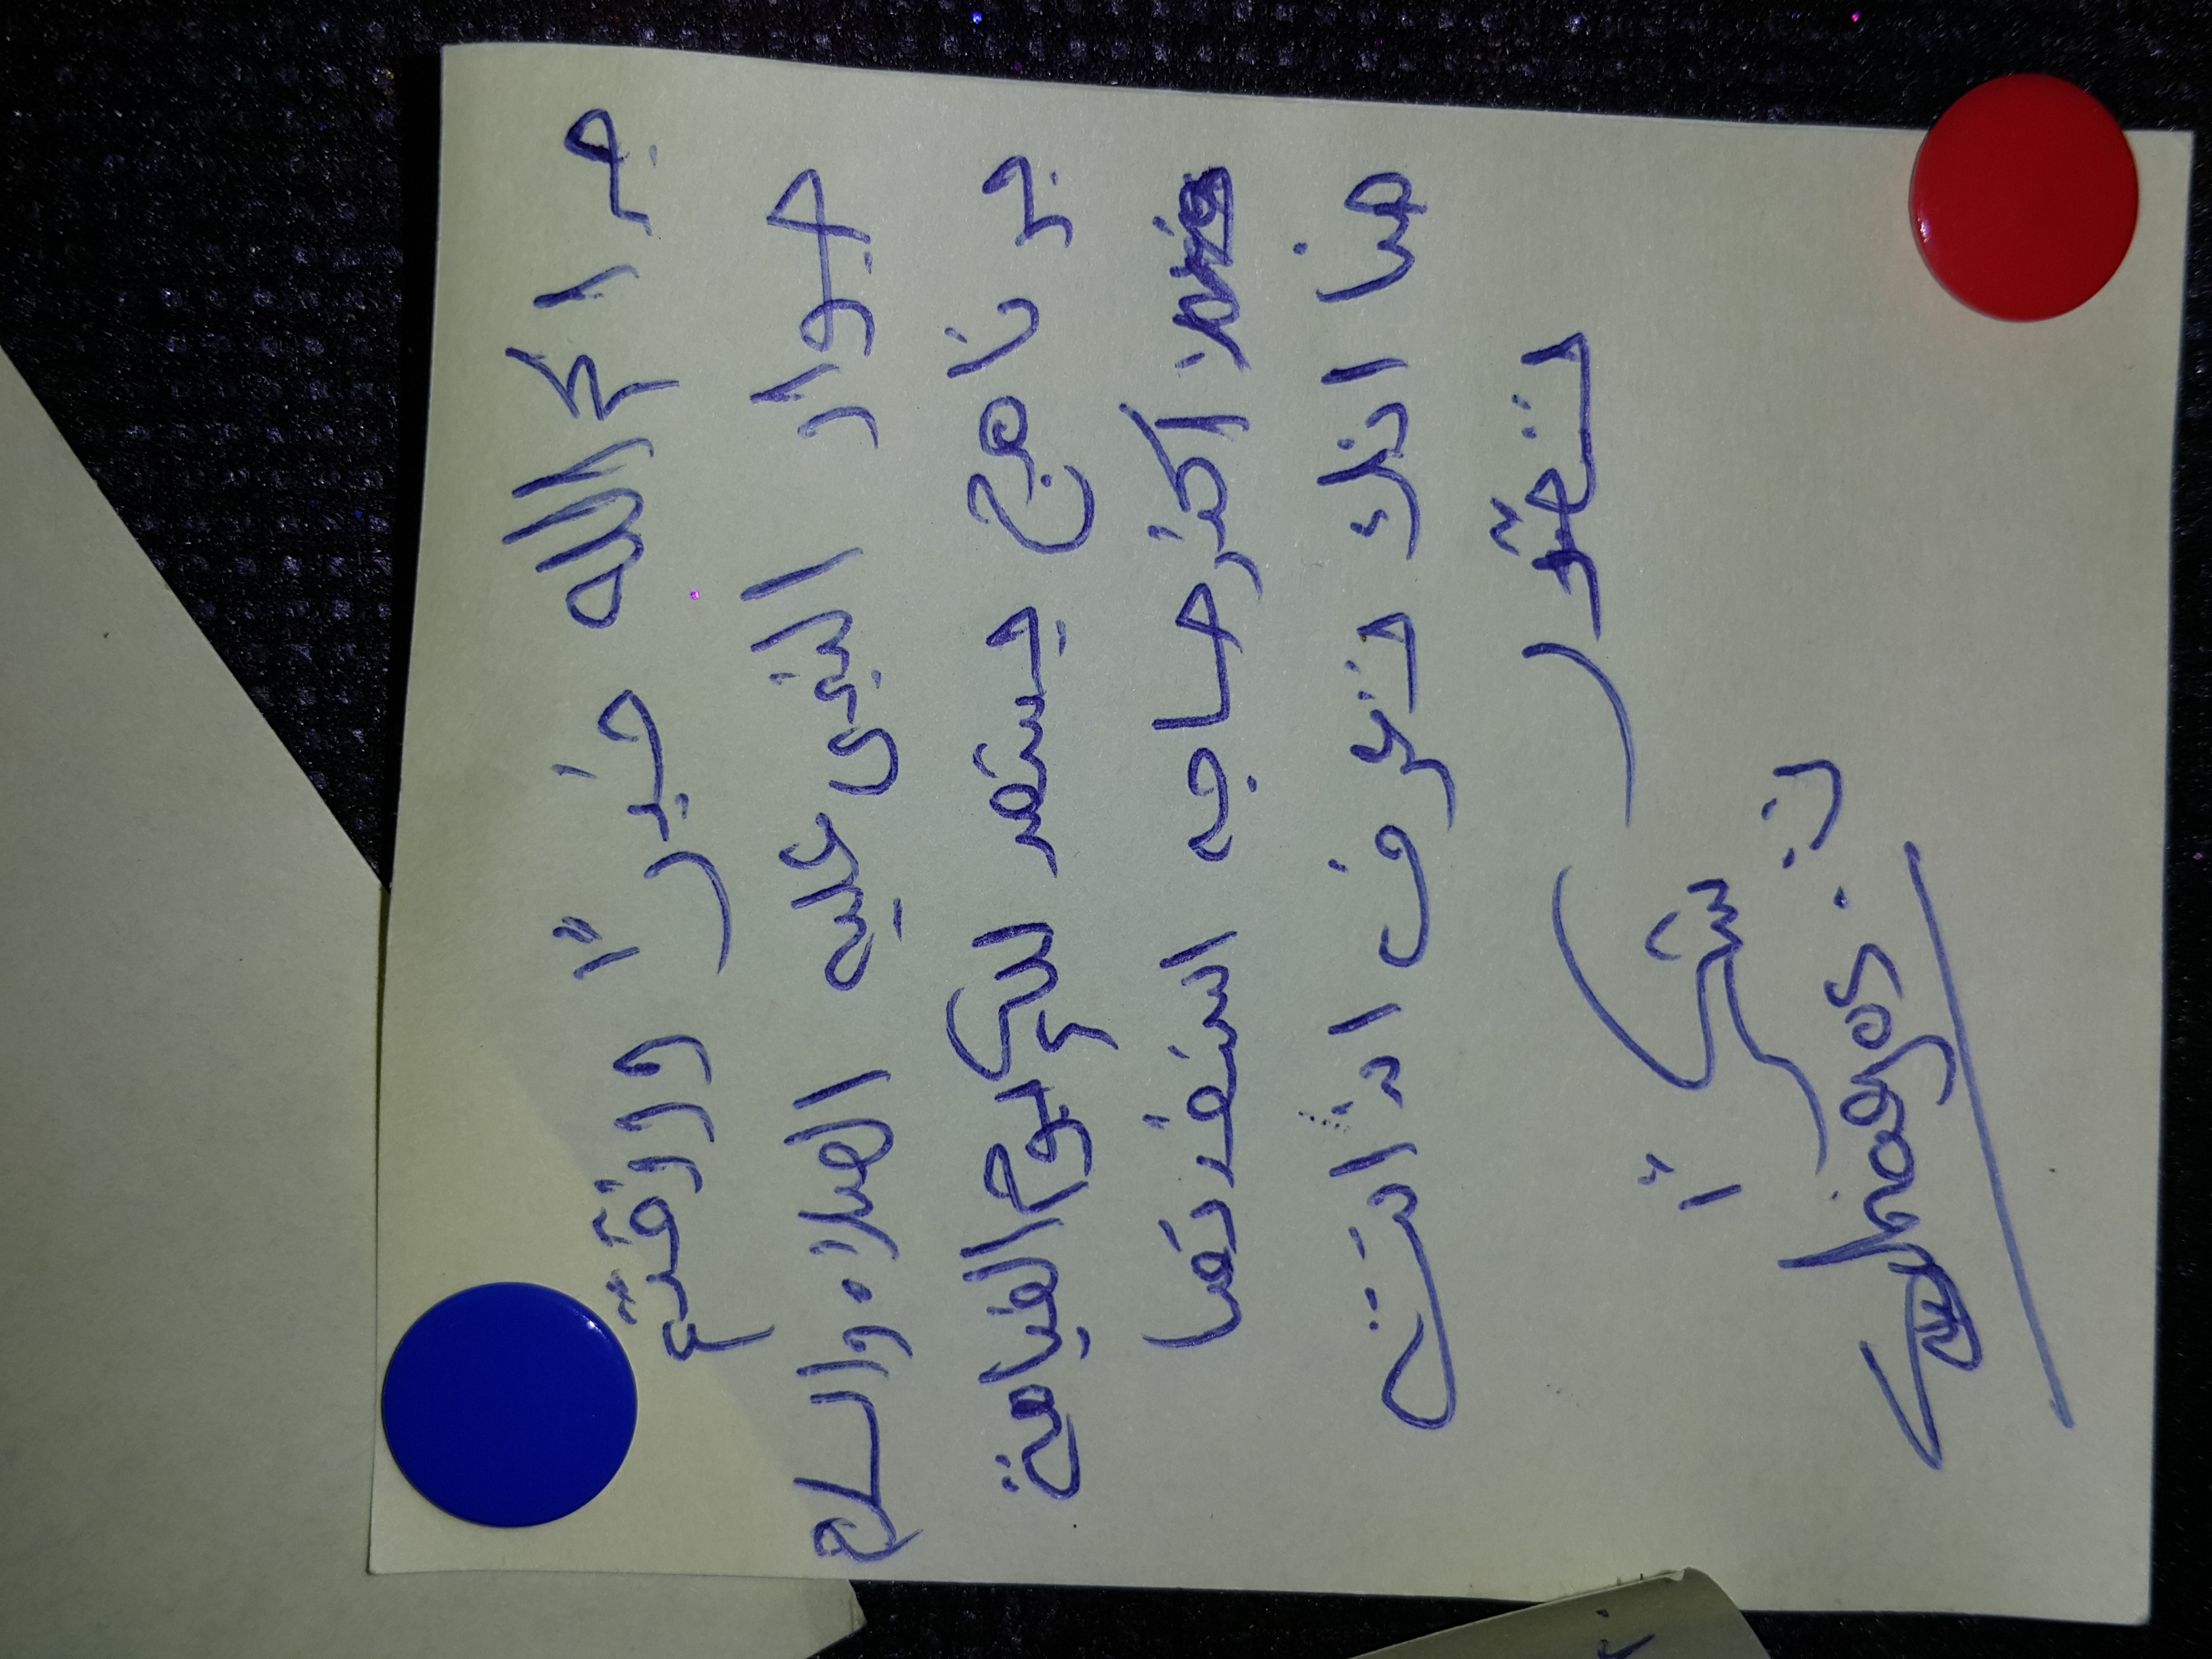 جراكم الله خيرًا وارزقتم
جوار النبى عليه الصلاة والسلام
برنامج يستعد لكم يوم القيامة
اكثر حاجه استفدتها
هنا انك تعرف انت
تتطور
شكرًا